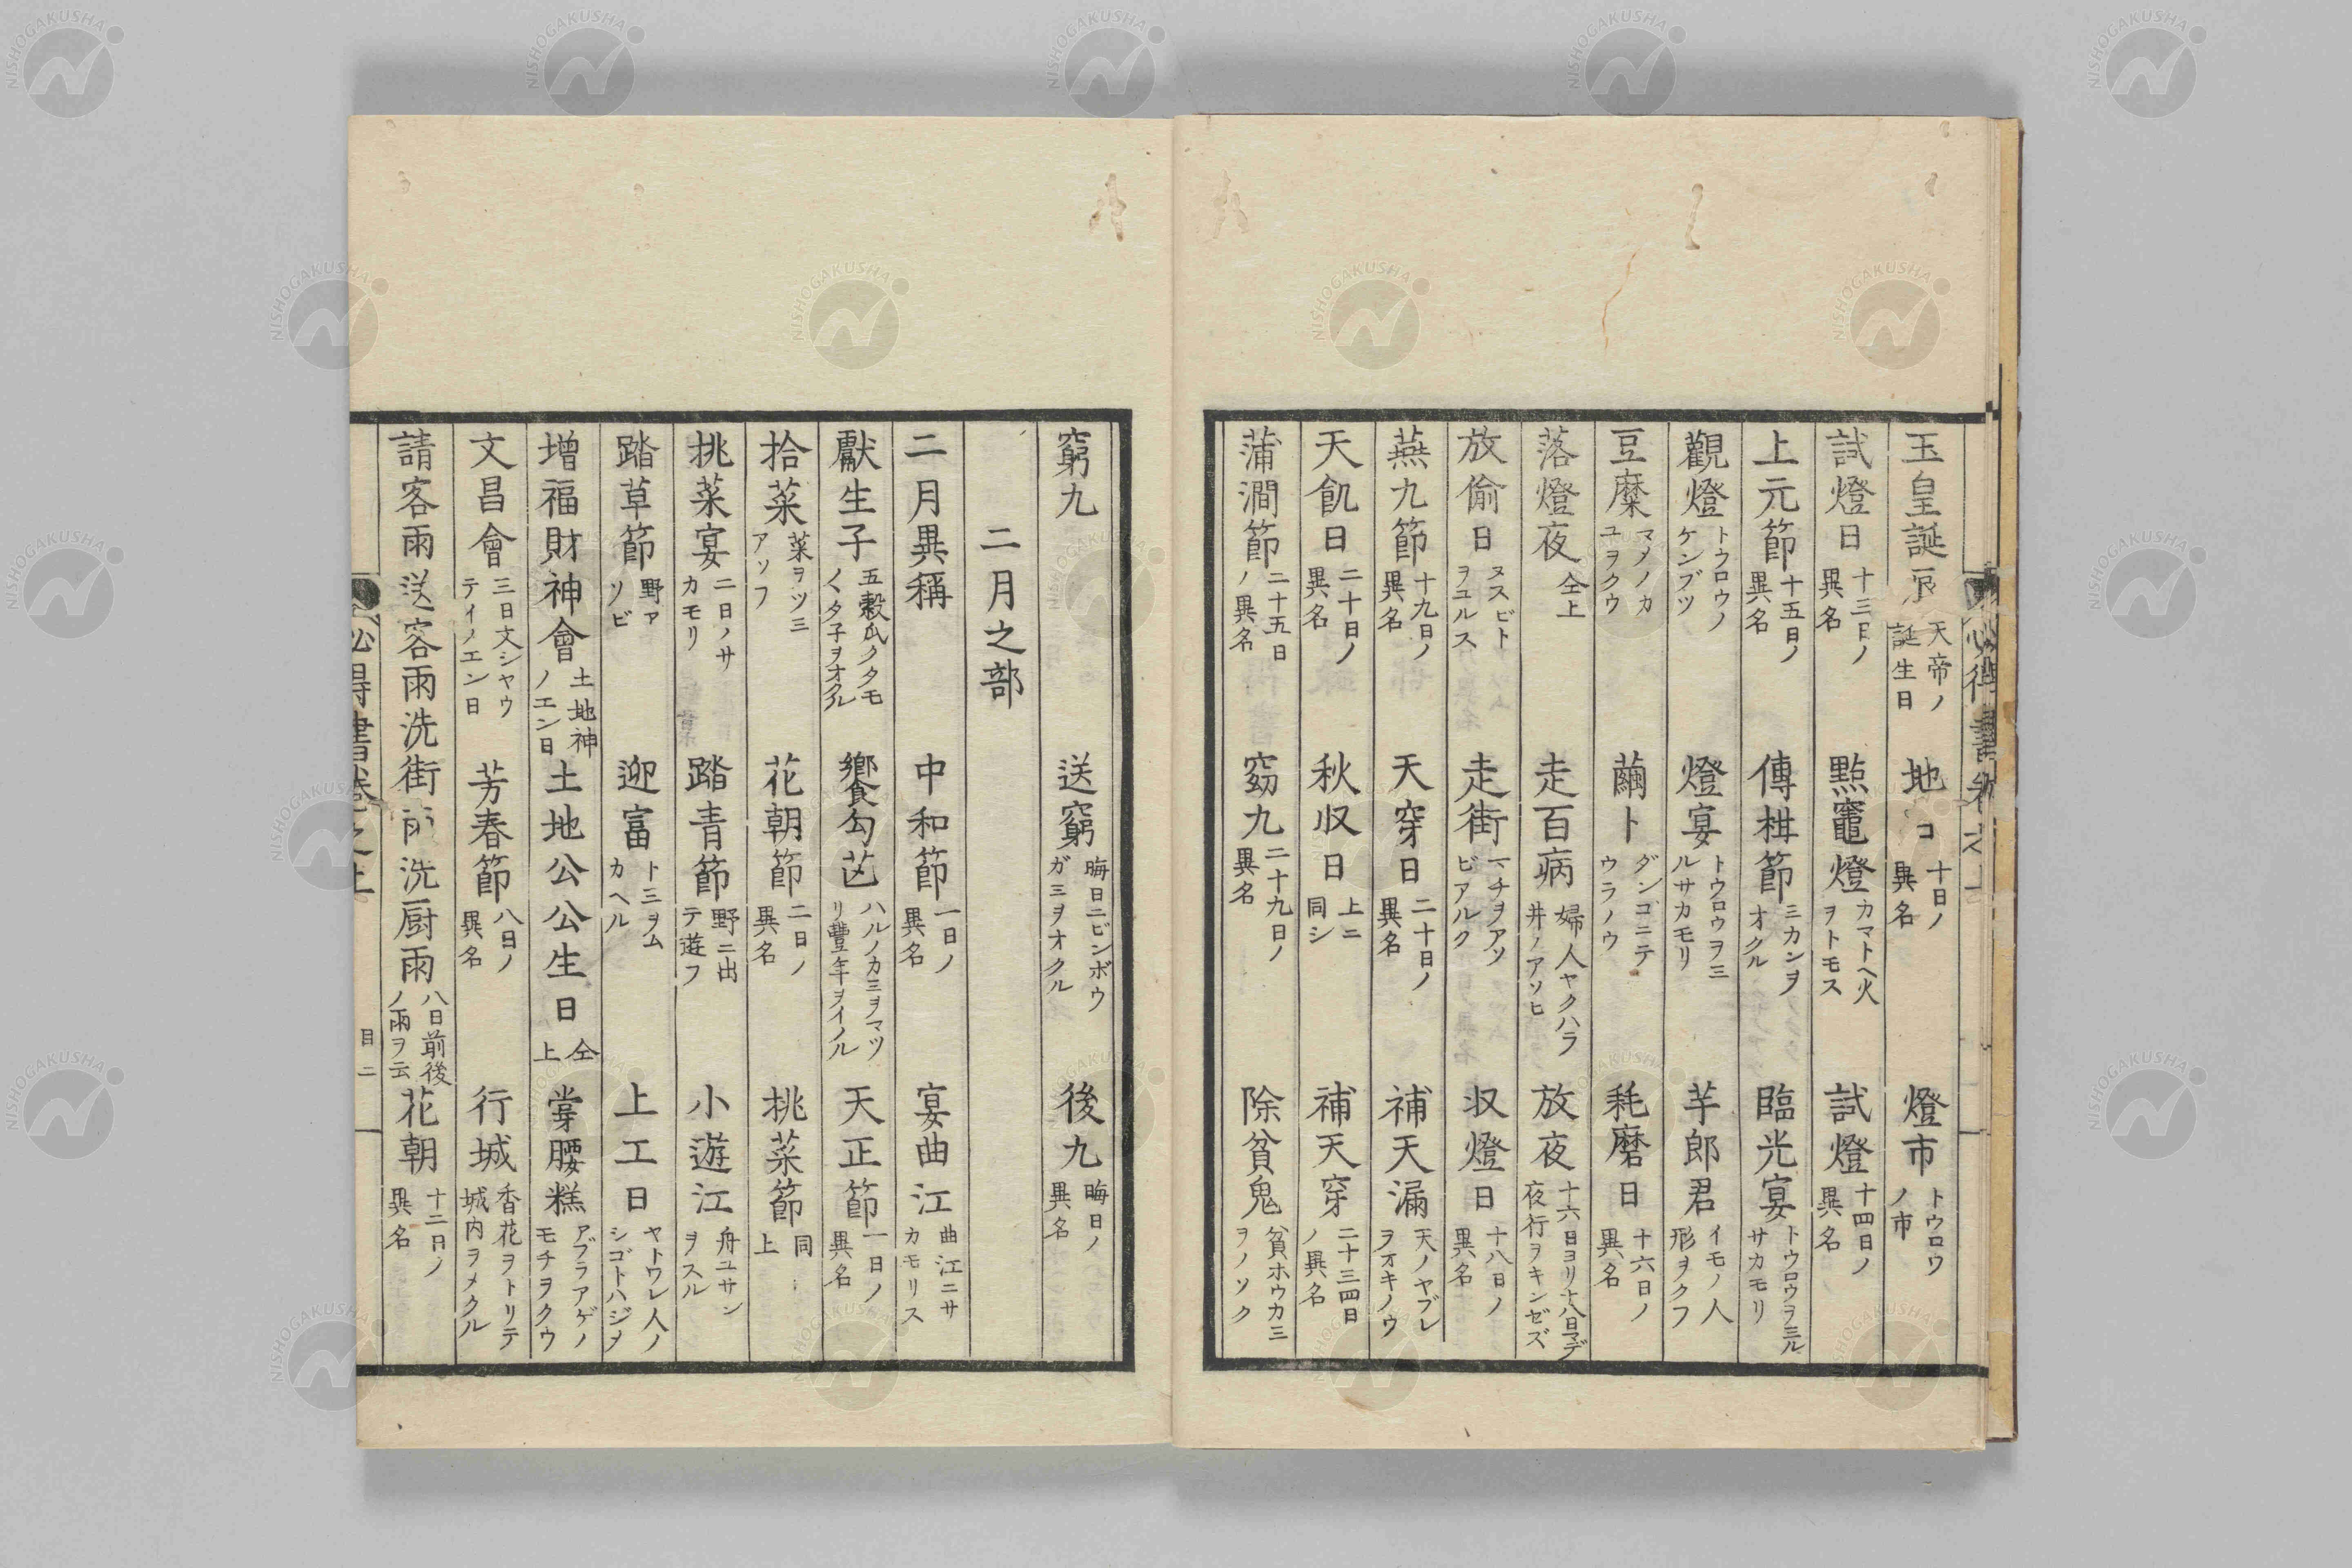 玉皇誕辰 天帝ノ誕生日 地コ 十日ノ異名 燈市 トウロウノ市
試燈日 十三日ノ異名 點竈燈 カマトヘ火ヲトモス 試燈 十四日ノ異名
上元節 十五日ノ異名 傳柑節 ミカンヲオクル 臨光宴 トウロウヲミルサカモリ
觀燈 トウロウノケンブツ 燈宴 トウロウヲミルサカモリ 芋郎君 イモノ人形ヲクフ
豆糜 マメノカユヲクウ 繭卜 ダンゴニテウラノウ 耗磨日 十六日ノ異名
落燈夜 仝上 走百病 婦人ヤクハラ井ノアソヒ 放夜 十六日ヨリ十八日マデ夜行ヲキンゼズ
放偷日 ヌスビトヲユルス 走街 マチヲアソビアルク 収燈日 十八日ノ異名
燕九節 十九日ノ異名 天穿日 二十日ノ異名 補天漏 天ノヤブレヲオキノウ
天飢日 二十日ノ異名 秋収日 上ニ同シ 補天穿 二十三四日ノ異名
蒲澗節 二十五日ノ異名 窈九 二十九日ノ異名 除貧鬼 貧ホウカミヲノソク
窮九 送窮 晦日ニビンボウガミヲオクル 後九 晦日ノ異名
二月之部
二月異稱 中和節 一日ノ異名 宴曲江 曲江ニサカモリス
獻生子 五穀瓜クタモノクタ子ヲオクル 饗勾芒 ハルノカミヲマツリ豐年ヲイノル 天正節 一日ノ異名
拾菜 菜ヲツミアソフ 花朝節 二日ノ異名 挑菜節 同上
挑菜宴 二日ノサカモリ 踏青節 野ニ出テ遊フ 小遊江 舟ユサンヲスル
踏草節 野アソビ 迎富 トミヲムカヘル 上工日 ヤトワレ人ノシゴトハジメ
增福財神會 土地神ノエン日 土地公公生日 仝上 掌腰糕 アブラアゲノモチヲクウ
文昌會 三日文シャウテイノエン日 芳春節 八日ノ異名 行城 香花ヲトリテ城内ヲメクル
請客雨 送客雨 洗街雨 洗厨雨 八日前後ノ雨ヲ云 花朝 十二日ノ異名
目二